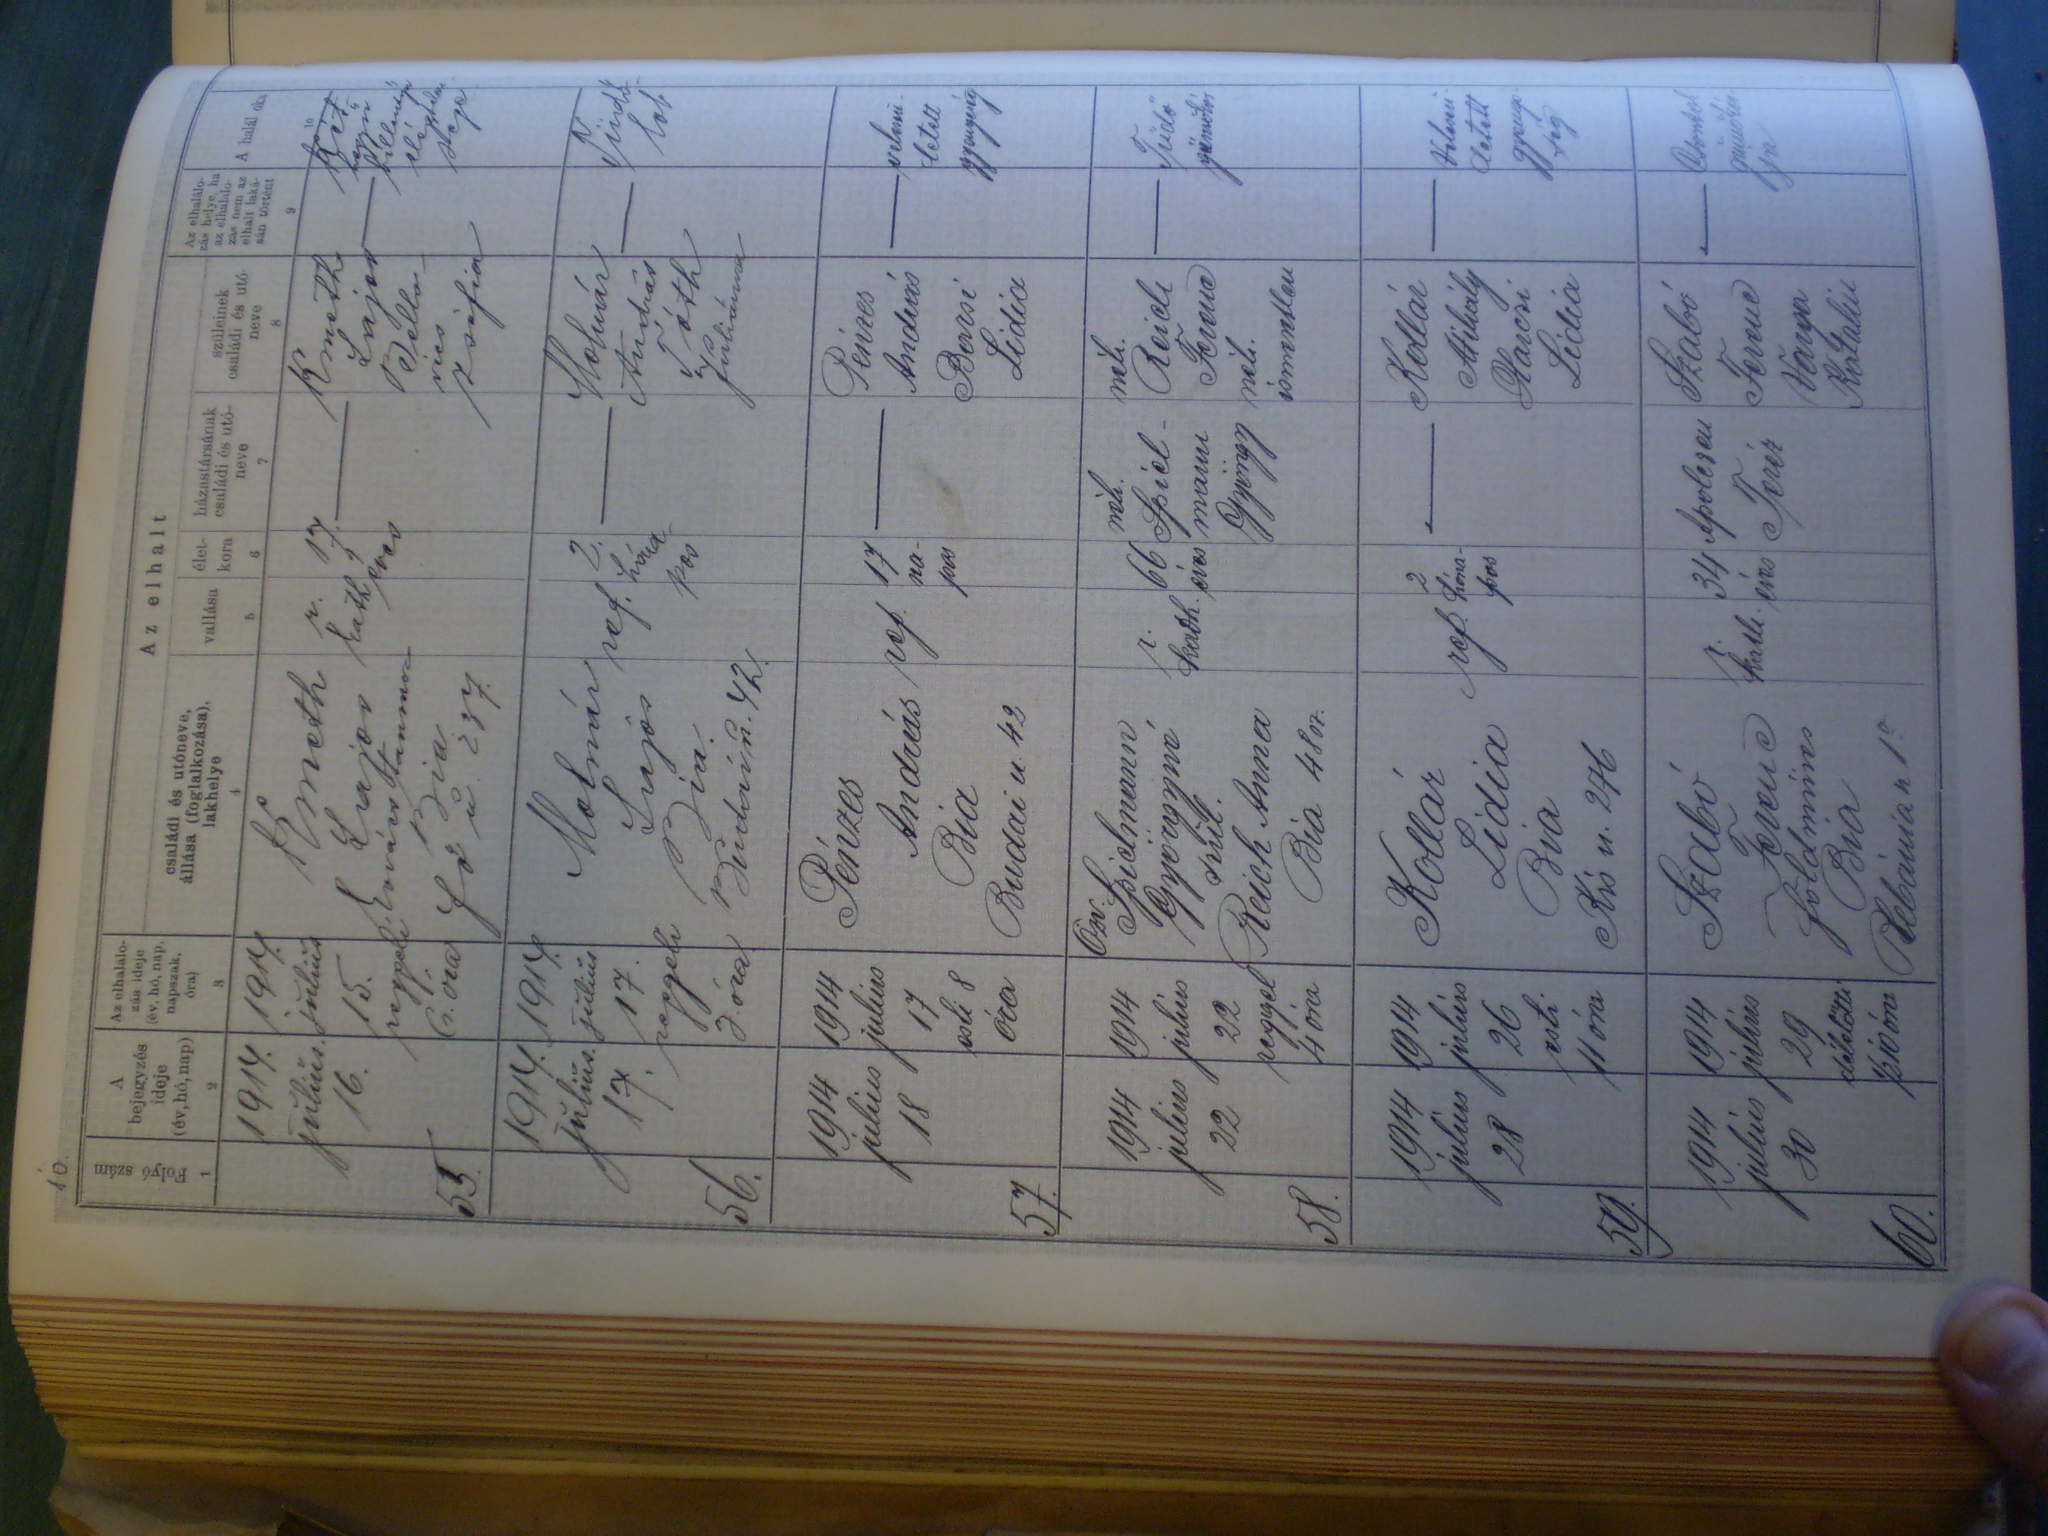 10.
Az elhalt
Folyó szám
1
A
bejegyzés
ideje
(év, hó, nap)
2
Az elhalálo-
zás ideje
(év, hó, nap,
napszak,
óra)
3
családi és utóneve,
állása (foglalkozása),
lakhelye
4
vallása
5
élet-
kora
6
házastársának
családi és utó-
neve
7
szüleinek
családi és utó-
neve
8
Az elhalálo-
zás helye, ha
az elhalálo-
zás nem az
elhalt laká-
sán történt
9
A halál oka
10
55.
1914.
július.
16.
1914.
július
15.
reggeli
6. óra
Kmeth
Lajos
Bia
Fő u. 237.
r.
kath.
17
éves
—
Kmeth
Lajos
zsófia
—
56.
1914.
július.
17.
1914.
július
17.
reggeli
2. óra
Molnár
Lajos
Bia.
Budai u. 42.
ref.
2.
hóna-
pos
—
Molnár
András
Tóth
Juliánna
—
Tüdő-
lob.
57.
1914
július
18
1914
július
17
esti 8
óra
Pénzes
András
Bia
Budai u. 42
ref.
17
na-
pos
—
Pénzes
András
Bercsi
Lidia
—
velszü-
letett
gyengeség
58.
1914
július
22
1914
július
22
reggel
4 óra
Özv.
Spielmann
Györgyné
szül.
Reich Anna
Bia 48 sz.
r.
kath.
66
éves
néh.
Spiel-
mann
György
néh.
Reich
Ferenc
néh.
ismeretlen
—
Tüdő
gümőkór
59.
1914
július
28
1914
július
26
esti
11 óra
Kollár
Lidia
Bia
Kis u. 276
ref.
2
hóna-
pos
—
Kollár
Mihály
Karcsi
Lidia
—
Velszü-
letett
gyenge-
ség
60.
1914
július
30
1914
július
29
délelőtti
óra
Szabó
Ferenc
földmives
Bia
Plébánia u.
r.
kath.
34
éves
Apolczer
Teréz
Szabó
Ferenc
Varga
Katalin
—